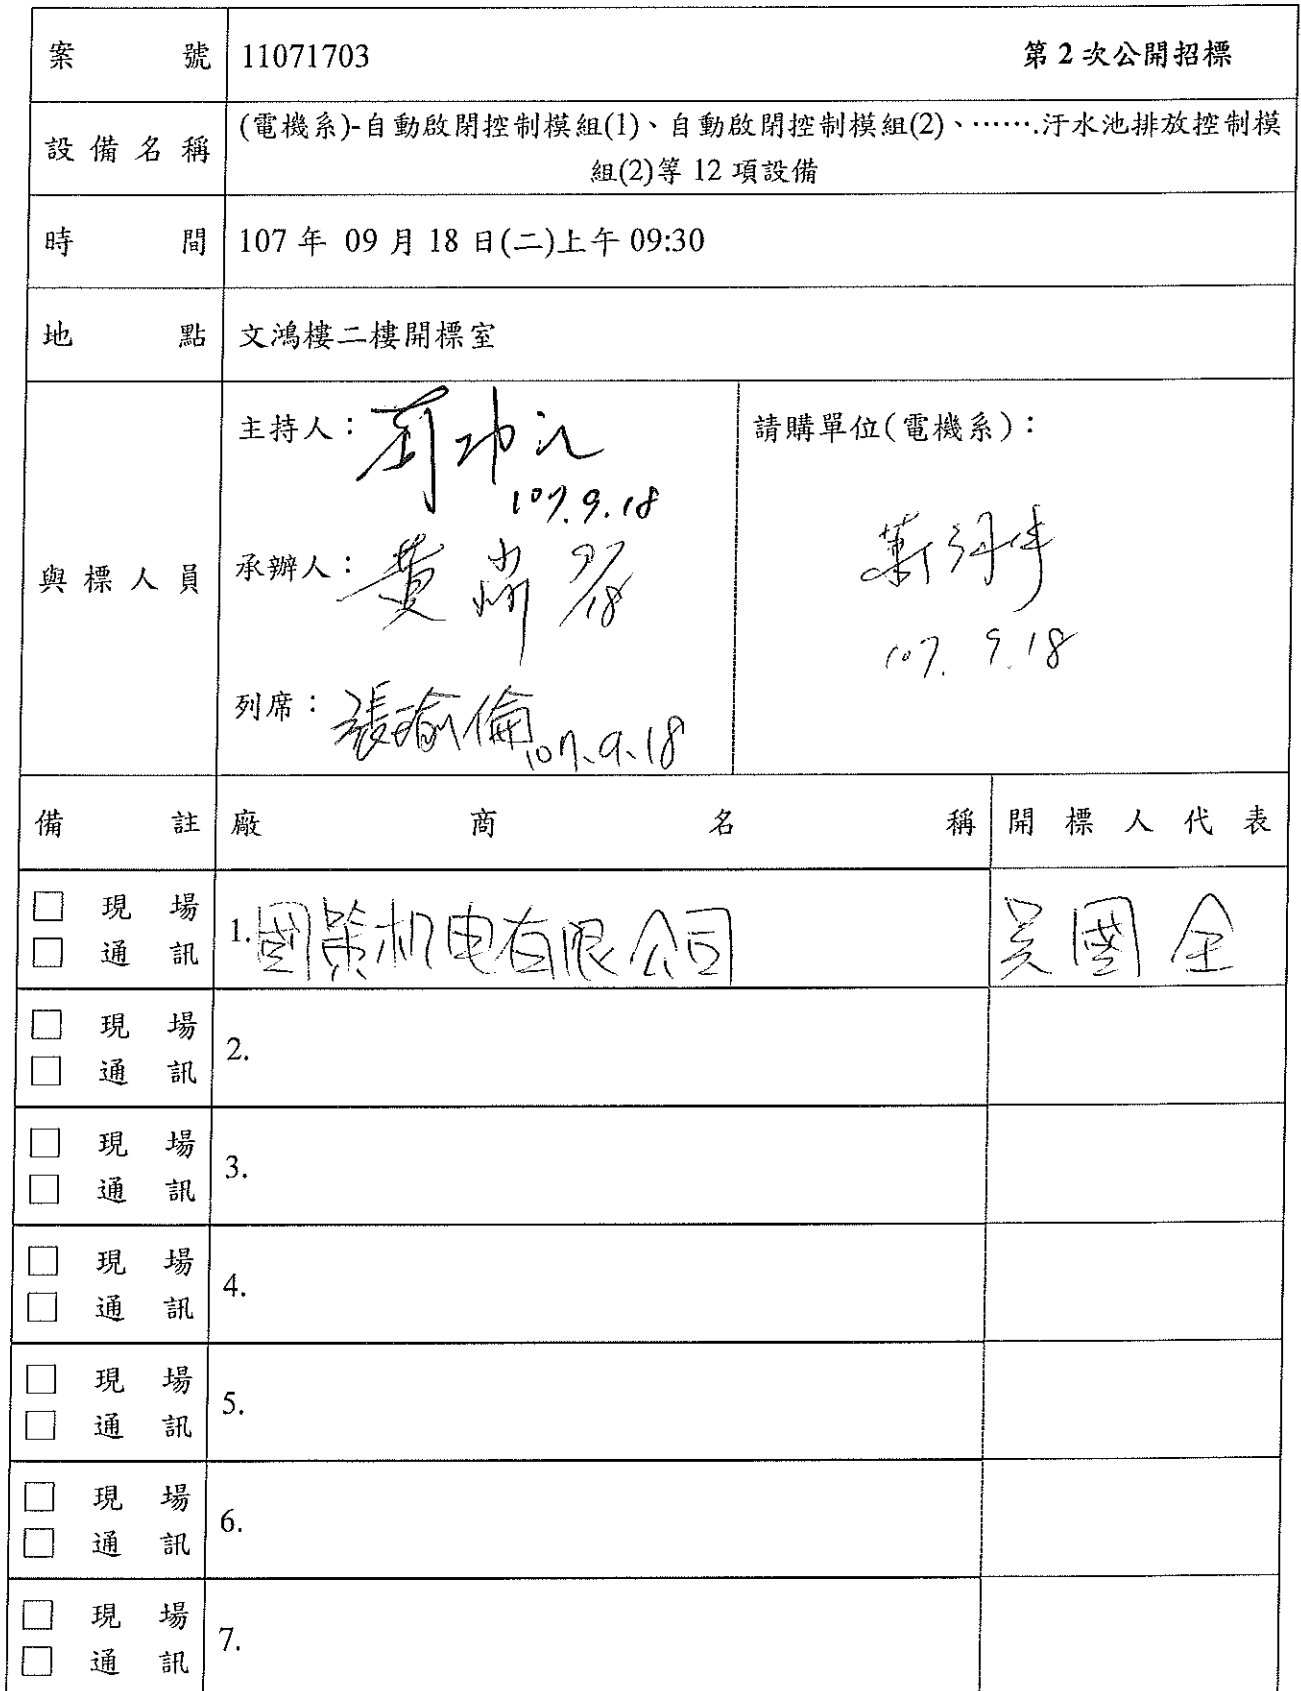 案號 11071703 第2次公開招標
設備名稱 (電機系)-自動啟閉控制模組(1)、自動啟閉控制模組(2)、…….汙水池排放控制模
組(2)等 12 項設備
時間 107 年 09 月 18 日(二)上午 09:30
地點 文鴻樓二樓開標室
與標人員
主持人：
107.9.18
承辦人：黃 9/18
列席：張瑜倫 107.9.18
請購單位(電機系)：
107. 9.18
備註 廠商名稱 開標人代表
□ 現場
□ 通訊
1.國策机电有限公司 吳國全
□ 現場
□ 通訊
2.
□ 現場
□ 通訊
3.
□ 現場
□ 通訊
4.
□ 現場
□ 通訊
5.
□ 現場
□ 通訊
6.
□ 現場
□ 通訊
7.